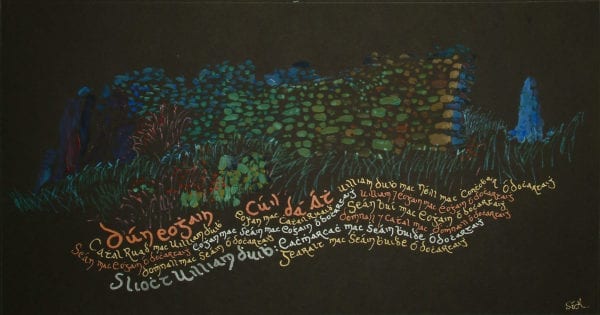 dún eoġain
Cúil dá Át
uilliam duib mac neill mac Concobair Ó docartaiġ
Catal Ruad mac uilliam duib
eoġan mac Catal Ruad
uilliam mac eoġain ó docartaiġ
Seán mac eoġain ó docartaiġ
eoġan mac Seáin mac eoġain ó docartaiġ
Seán buí mac eoġain ó docartaiġ
domnaill mac Seáin ó docartaiġ
domnaill ⁊ Catal mac domnaill ó docartaiġ
Slioct uilliam duib: Eacmarcac mac Seáin buide Ó docartaiġ
Gearailt mac Seáin buide Ó docartaiġ